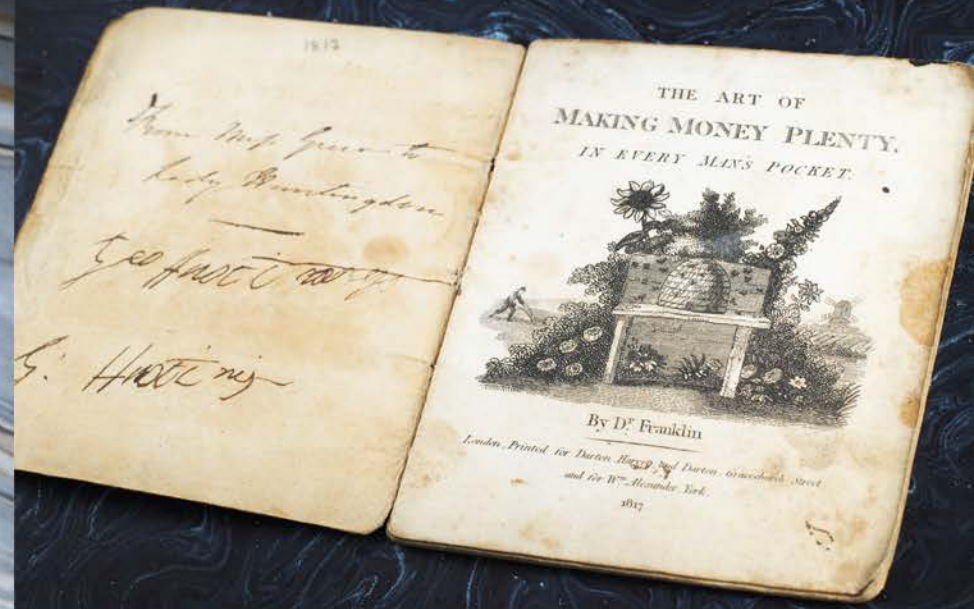 1817
From Miss Green to
Lady Huntingdon
Geo Hastings
G. Hastings
THE ART OF
MAKING MONEY PLENTY.
IN EVERY MAN'S POCKET.
By Dr. Franklin
London, Printed for Darton Harvey and Darton Gracechurch Street
and for Wm. Alexander York.
1817